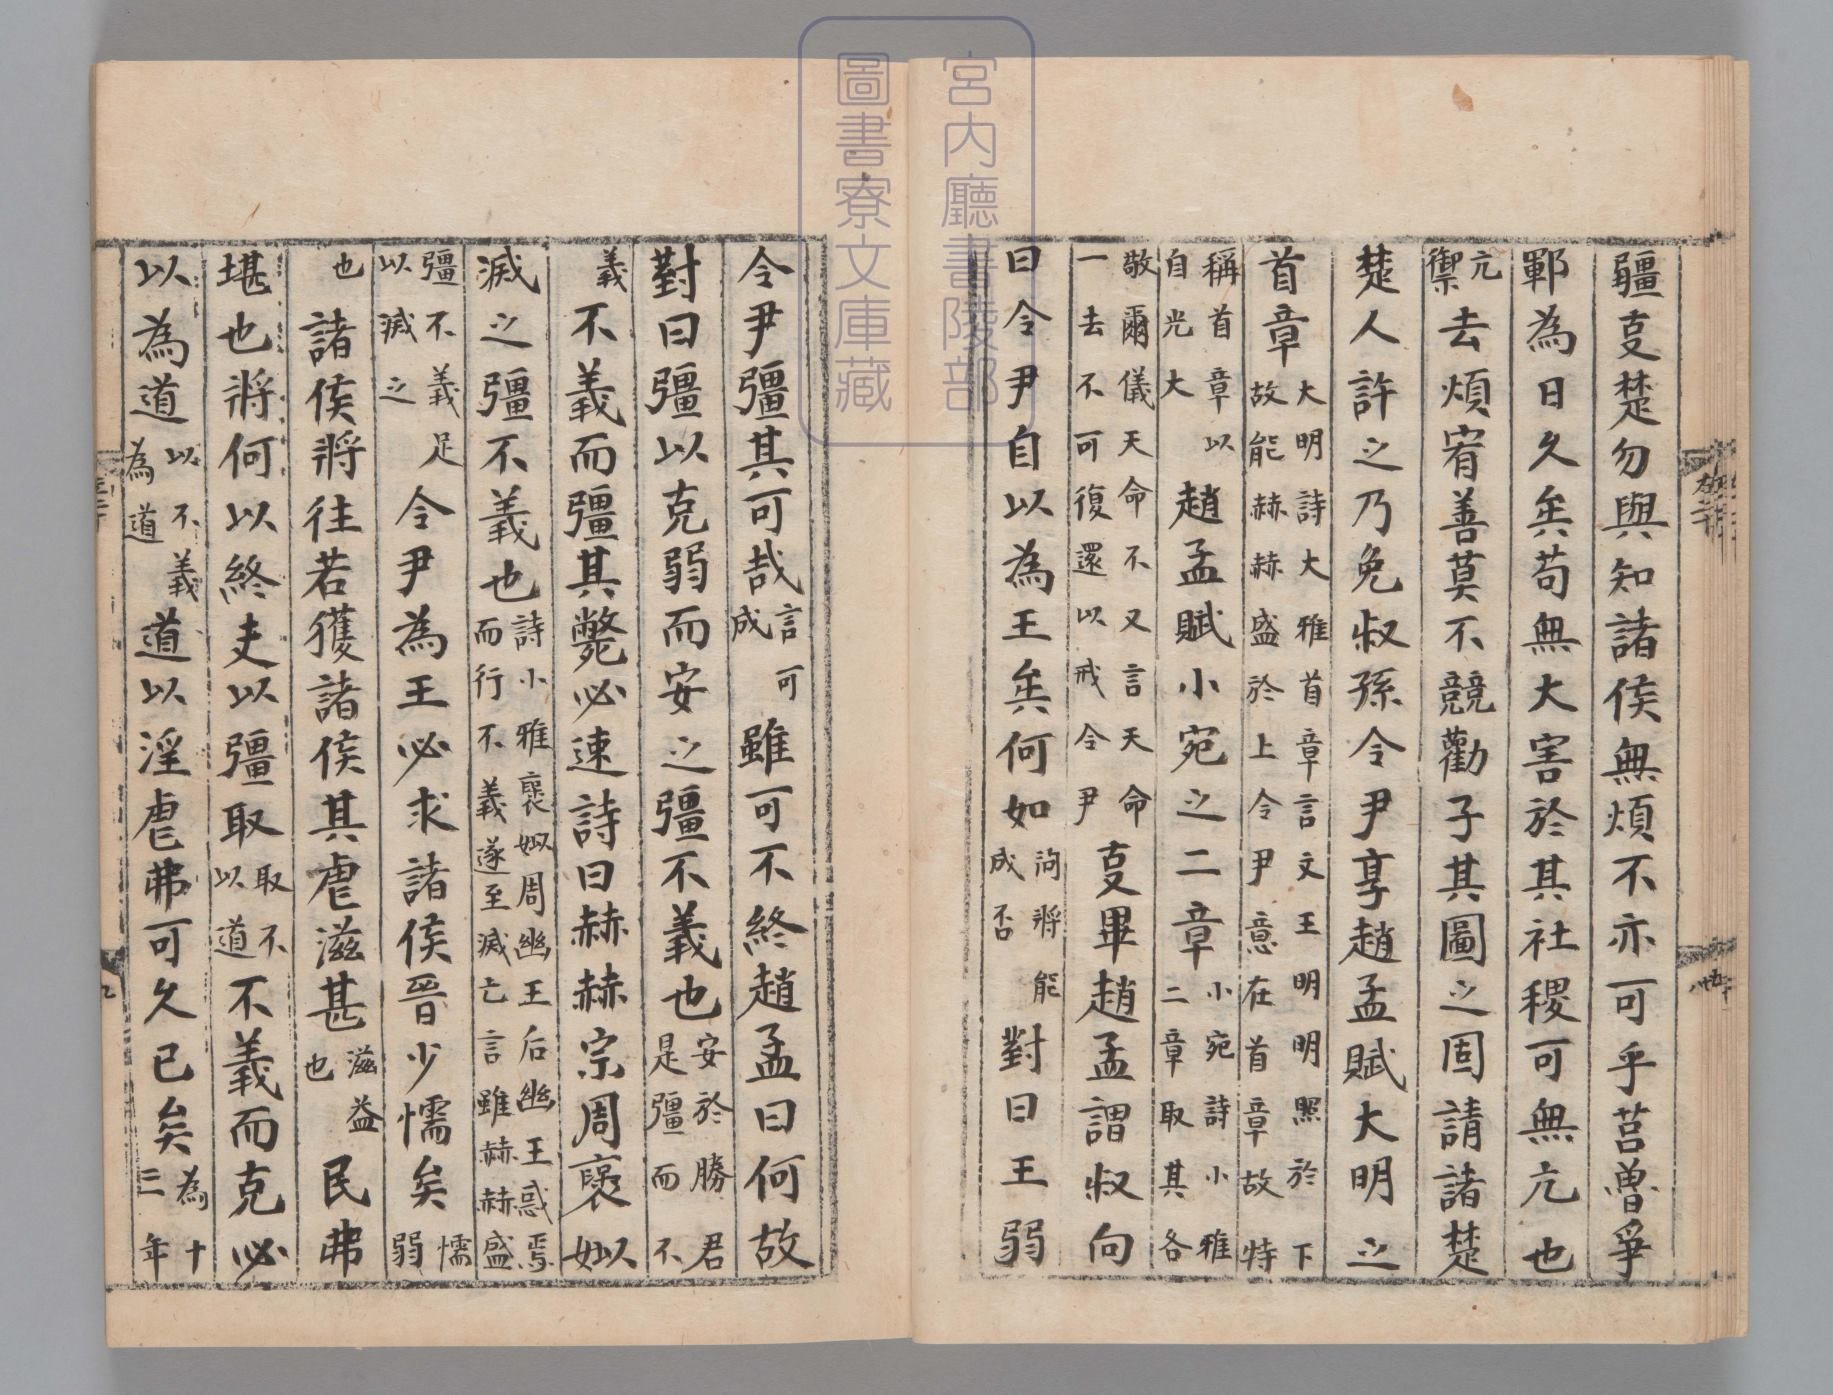 疆叓楚勿與知諸侯無煩不亦可乎莒魯爭
鄆為日久矣苟無大害於其社稷可無亢也
亢禦去煩宥善莫不競勸子其圖之固請諸楚
楚人許之乃免叔孫令尹享趙孟賦大明之
首章大明詩大雅首章言文王明明照於下故能赫赫盛於上令尹意在首章故特
稱首章以自光大趙孟賦小宛之二章小宛詩小雅二章取其各
敬爾儀天命不又言天命一去不可復還以戒令尹叓畢趙孟謂叔向
曰令尹自以為王矣何如問將能成否對曰王弱
令尹彊其可哉言可成雖可不終趙孟曰何故
對曰彊以克弱而安之彊不義也安於勝君是彊而不
義不義而彊其斃必速詩曰赫赫宗周褒姒
滅之彊不義也詩小雅褒姒周幽王后幽王惑焉而行不義遂至滅亡言雖赫赫盛
彊不義足以滅之令尹為王必求諸侯晉少懦矣懦弱
也諸侯將往若獲諸侯其虐滋甚滋益也民弗
堪也將何以終夫以彊取取不以道不義而克必
以為道以不義為道道以淫虐弗可久已矣為十三年
宮内廳書陵部
圖書寮文庫藏